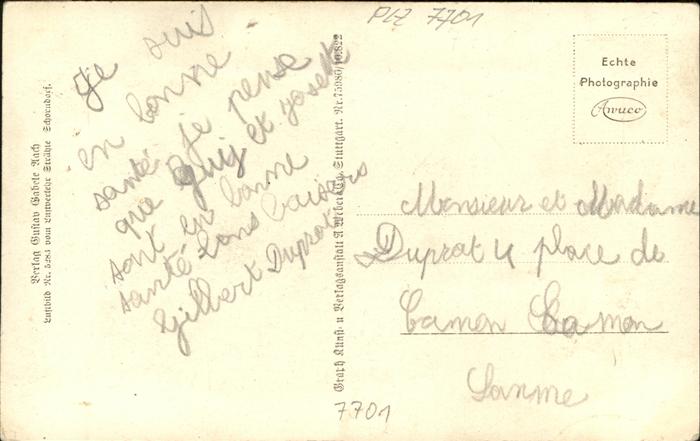 PLZ 7701
Je suis
en bonne
santé je pense
que Guij et Josette
sont en bonne
santé bons baisers
Gilbert Duprat
Echte
Photographie
Awuco
Monsieur et Madame
Duprat 4 place de
Camon Camon
Somme
7701
Verlag Gustav Gabele Aach
Luftbild Nr. 5283 vom Luftverkehr Strähle Schorndorf.
Graph Kunst- u Verlagsanstalt A Weber & Co, Stuttgart. Nr. 75980/10.822